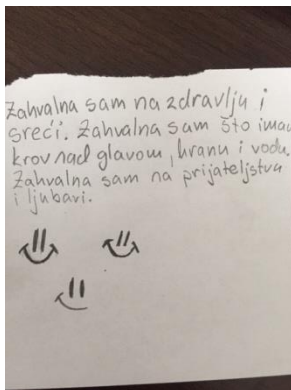 Zahvalna sam na zdravlju i
sreći. Zahvalna sam što imam
krov nad glavom, hranu i vodu.
Zahvalna sam na prijateljstvu
i ljubavi.